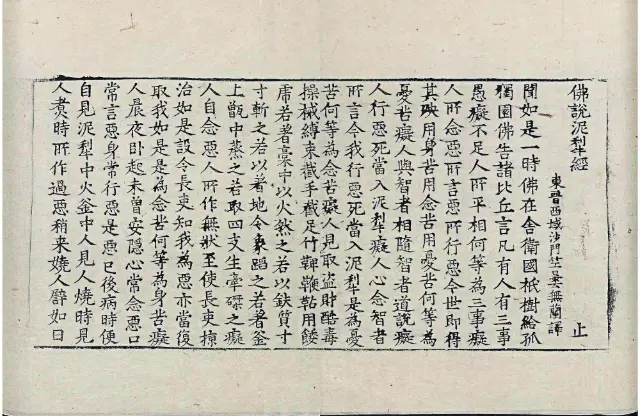 佛說泥犁經 止
東晉西域沙門竺曇無蘭譯
聞如是一時佛在舍衛國祇樹給孤
獨園佛告諸比丘言凡有人有三事
愚癡不足人所平相何等為三事癡
人所念惡所言惡所行惡今世即得
其殃用身苦用念苦用憂苦何等為
憂苦癡人與智者相隨智者道說癡
人行惡死當入泥犁癡人心念智者
所言今我行惡死當入泥犁是為憂
苦何等為念苦癡人見取盜財酷毒
操械縛束截手截足竹鞞鞭鞊用餧
虎若著藁中以火然之若以鈇質寸
寸斬之若以著地令象蹈之若著釜
上甑中蒸之若取四支生牽磔之癡
人自念惡人所作無狀至使長吏掠
治如是設令長吏知我為惡亦當復
取我如是是為念苦何等為身苦癡
人晨夜卧起未曾安隱心常念惡口
常言惡身常行惡是惡已後病時便
自見泥犁中火釜中人見人燒時見
人煑時所作過惡稍来嬈人譬如日